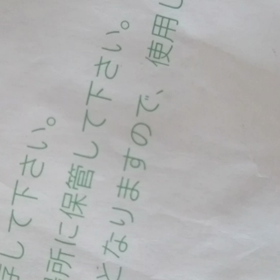 して下さい。
所に保管して下さい。
となりますので、使用し